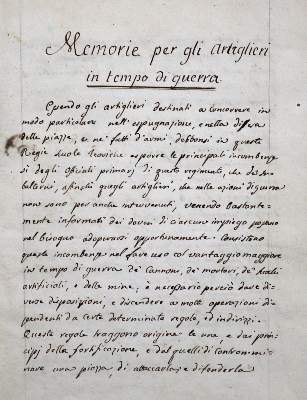 Memorie per gli Artiglieri
in tempo di guerra
Essendo gli artiglieri destinati a concorrere in
modo particolare nell'espugnazione, e nella difesa
delle piazze, e ne' fatti d'armi, debbonsi in queste
Regie Scuole Teoriche esporre le principali incombenze
sì degli Ofiziali primarj di questo regimento, che de' su-
balterni, afinchè quegli artiglieri, che nelle azioni di guerra
non sono per anche intervenuti, venendo bastante-
mente informati dei doveri di ciascun impiego possano
nel bisogno adoperarsi opportunamente. Consistono
queste incombenze nel fare uso col vantaggio maggiore
in tempo di guerra de' Cannoni, de' mortari, de' fuochi
artificiali, e delle mine; è necessario perciò dare di-
verse disposizioni, e discendere a molte operazioni di-
pendenti da certe determinate regole, ed indirizzi.
Queste regole traggono origine le une, e dai prin-
cipj della fortificazione, e dal quelli di contrommi-
nare una piazza, di attaccarla, e difenderla